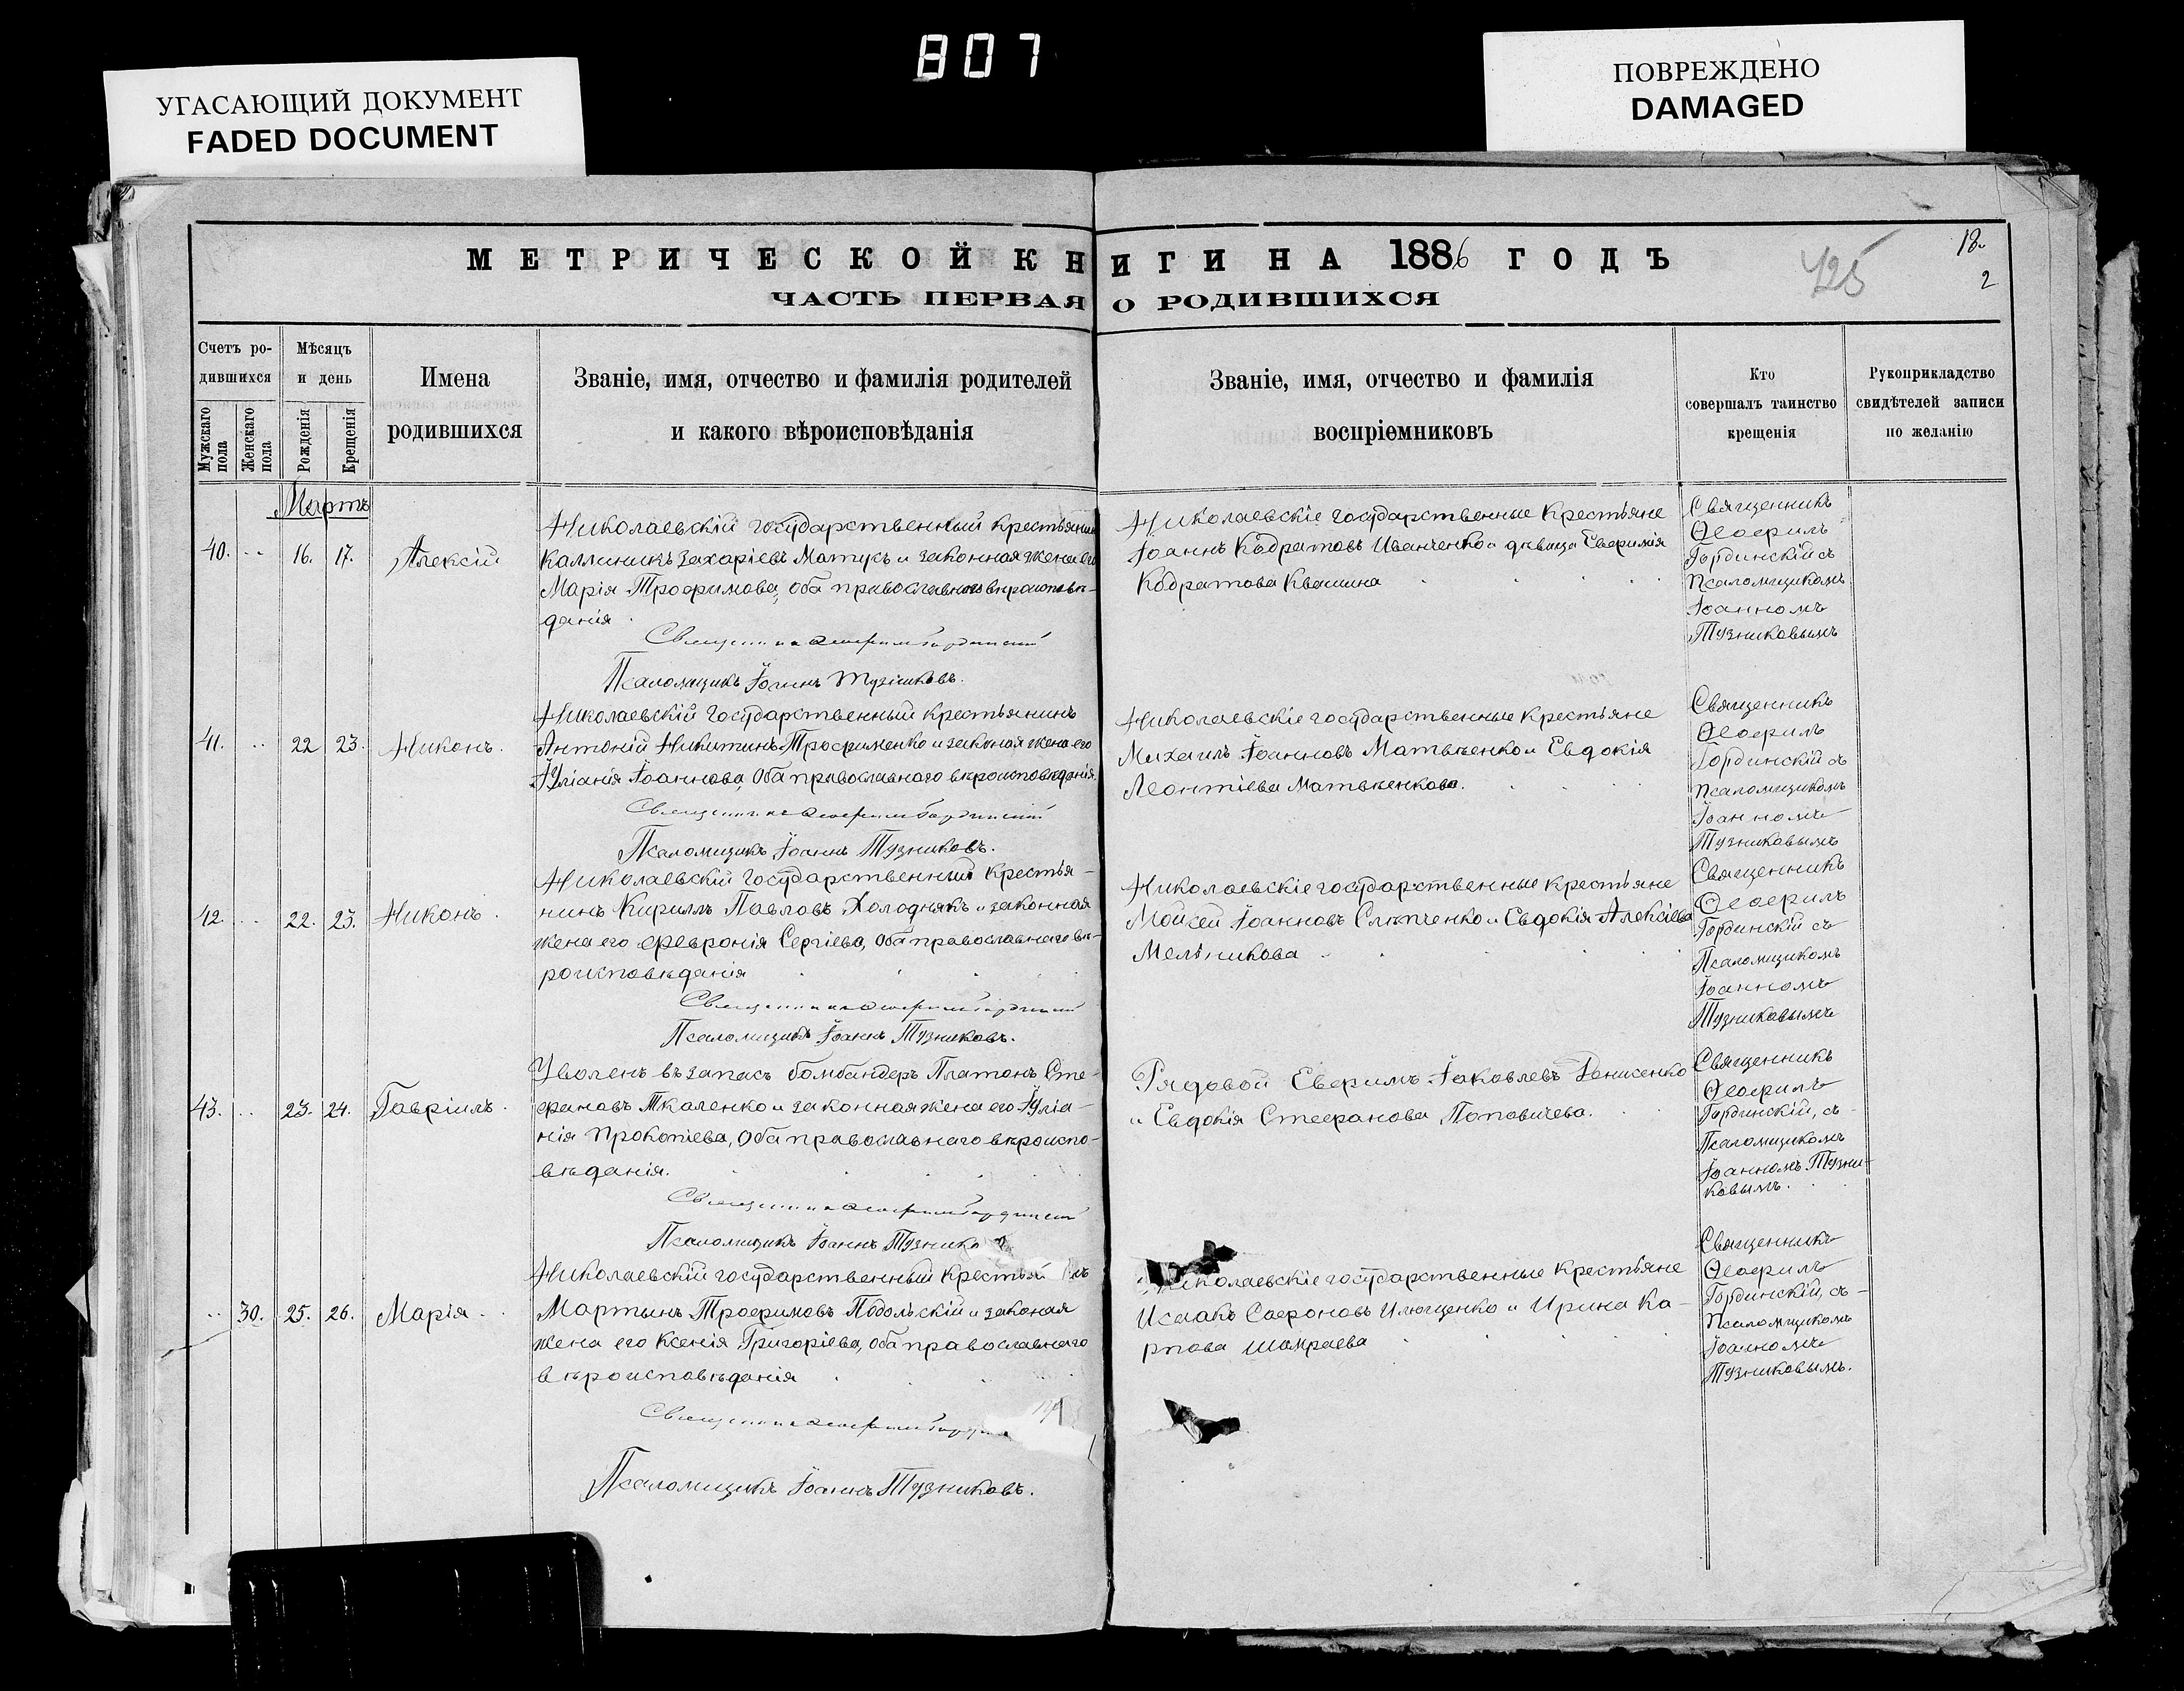 807
УГАСАЮЩИЙ ДОКУМЕНТ
FADED DOCUMENT
ПОВРЕЖДЕНО
DAMAGED
МЕТРИЧЕСКОЙ КНИГИ НА 1886 ГОДЪ
ЧАСТЬ ПЕРВАЯ О РОДИВШИХСЯ
425
18.
2
Счетъ ро-
дившихся
Мужскаго пола
Женскаго пола
Мѣсяцъ
и день
Рожденія
Крещенія
Имена
родившихся
Званіе, имя, отчество и фамилія родителей
и какого вѣроисповѣданія
Званіе, имя, отчество и фамилія
воспріемниковъ
Кто
совершалъ таинство
крещенія
Рукоприкладство
свидѣтелей записи
по желанію
Мартъ
40. 16. 17. Алексій
Николаевскій государственный крестьянинъ
Каллиникъ Захаріевъ Матукъ и законная жена его
Марія Трофимова, оба православнаго вѣроисповѣ-
данія
Священникъ Ѳеофилъ Гординскій
Псаломщикъ Іоаннъ Тузниковъ.
Николаевскіе государственные крестьяне
Іоаннъ Кодратовъ Иванченко и дѣвица Евфимія
Кодратова Квашина
Священникъ
Ѳеофилъ
Гординскій съ
Псаломщикомъ
Іоанномъ
Тузниковымъ
41. 22 23. Никонъ.
Николаевскій государственный крестьянинъ
Антоній Никитинъ Трофименко и законая жена его
Іуліанія Іоаннова, оба православнаго вѣроисповѣданія.
Священникъ Ѳеофилъ Гординскій
Псаломщикъ Іоаннъ Тузниковъ.
Николаевскіе государственные крестьяне
Михаилъ Іоанновъ Матвѣенко и Евдокія
Леонтіева Матвѣенкова.
Священникъ
Ѳеофилъ
Гординскій съ
Псаломщикомъ
Іоанномъ
Тузниковымъ
42. 22. 23. Никонъ.
Николаевскій государственный крестья-
нинъ Кириллъ Павловъ Холоднякъ и законная
жена его Февронія Сергіева, оба православнаго вѣ-
роисповѣданія
Священникъ Ѳеофилъ Гординскій
Псаломщикъ Іоаннъ Тузниковъ.
Николаевскіе государственные крестьяне
Мойсей Іоанновъ Слѣпченко и Евдокія Алексіева
Мельникова
Священникъ
Ѳеофилъ
Гординскій съ
Псаломщикомъ
Іоанномъ
Тузниковымъ
43. 23. 24. Гавріилъ.
Уволенъ въ запасъ бомбандеръ Платонъ Сте-
фановъ Ткаленко и законная жена его Іуліа-
нія Прокопіева, оба православнаго вѣроиспо-
вѣданія.
Священникъ Ѳеофилъ Гординскій
Псаломщикъ Іоаннъ Тузнико
Рядовой Евфимъ Іаковлевъ Денисенко
и Евдокія Стефанова Поповичева.
Священникъ
Ѳеофилъ
Гординскій, съ
Псаломщикомъ
Іоанномъ Тузни-
ковымъ.
30. 25. 26. Марія
Николаевскій государственный крестьянинъ
Мартынъ Трофимовъ Подольскій и законая
жена его Ксенія Григоріева, оба православнаго
вѣроисповѣданія
Священникъ Ѳеофилъ
Псаломщикъ Іоаннъ Тузниковъ.
Николаевскіе государственные крестьяне
Исаакъ Сафоновъ Илющенко и Ирина Ка-
рпова Шамраева
Священникъ
Ѳеофилъ
Гординскій, съ
Псаломщикомъ
Іоанномъ
Тузниковымъ.